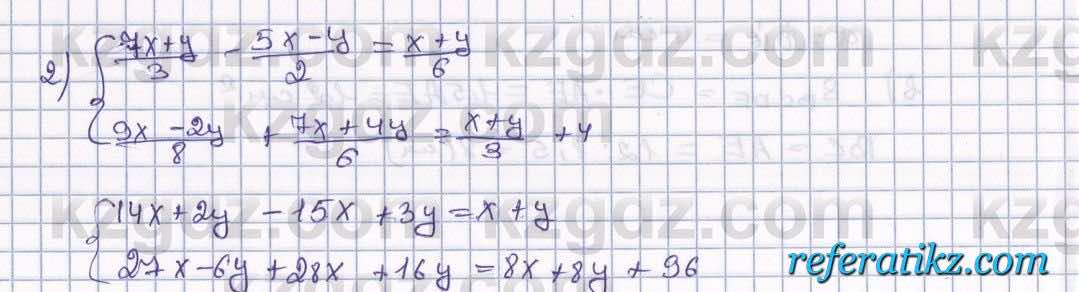 2) { (7x+y)/3 - (5x-y)/2 = (x+y)/6
(9x-2y)/8 + (7x+4y)/6 = (x+y)/3 + 4
{ 14x+2y -15x +3y = x+y
27x-6y +28x +16y = 8x+8y + 96
kzgdz.com
referatikz.com